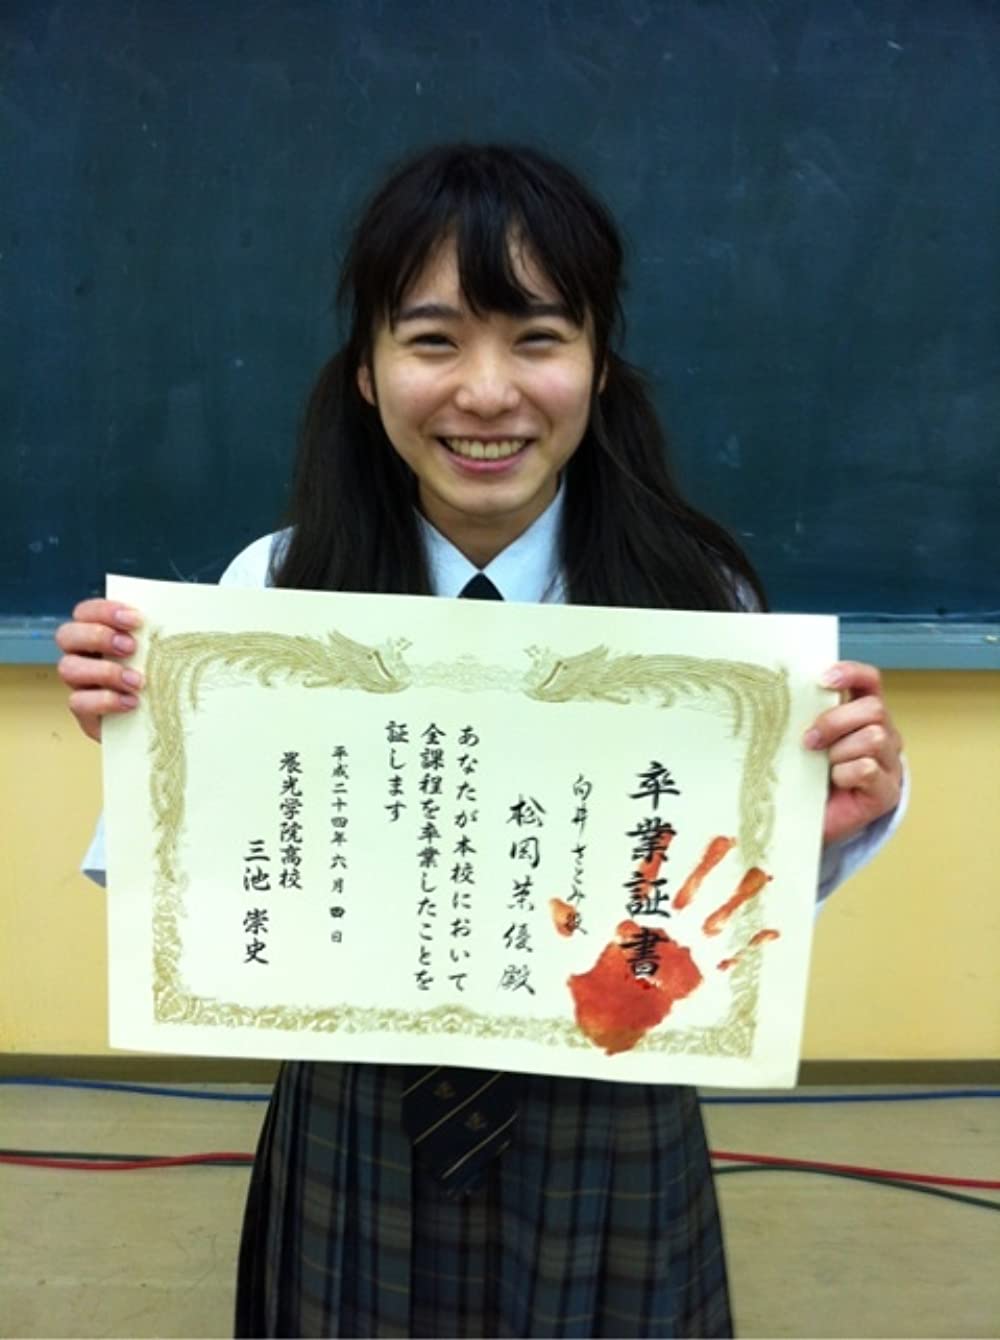 卒業証書
向井さとみ役
松岡茉優殿
あなたが本校において
全課程を卒業したことを
証します
平成二十四年六月四日
晨光学院高校
三池崇史